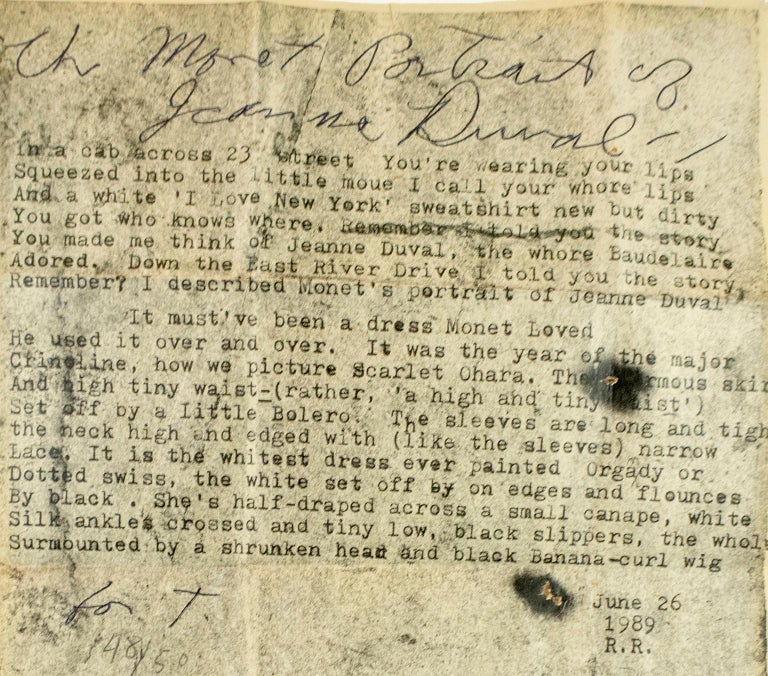 The Monet Portrait of
Jeanne Duval
In a cab across 23 street You're wearing your lips
Squeezed into the little moue I call your whore lips
And a white 'I Love New York' sweatshirt new but dirty
You got who knows where. Remember I told you the story
You made me think of Jeanne Duval, the whore Baudelaire
Adored. Down the East River Drive I told you the story,
Remember? I described Monet's portrait of Jeanne Duval
'It must've been a dress Monet Loved
He used it over and over. It was the year of the major
Crinoline, how we picture Scarlet Ohara. The ormous skir
And high tiny waist-(rather, 'a high and tiny aist')
Set off by a Little Bolero. The sleeves are long and tigh
the neck high and edged with (like the sleeves) narrow
Lace. It is the whitest dress ever painted Orgady or
Dotted swiss, the white set off by on edges and flounces
By black . She's half-draped across a small canape, white
Silk ankles crossed and tiny low, black slippers, the whol
Surmounted by a shrunken head and black Banana-curl wig
for T
48/50
June 26
1989
R.R.